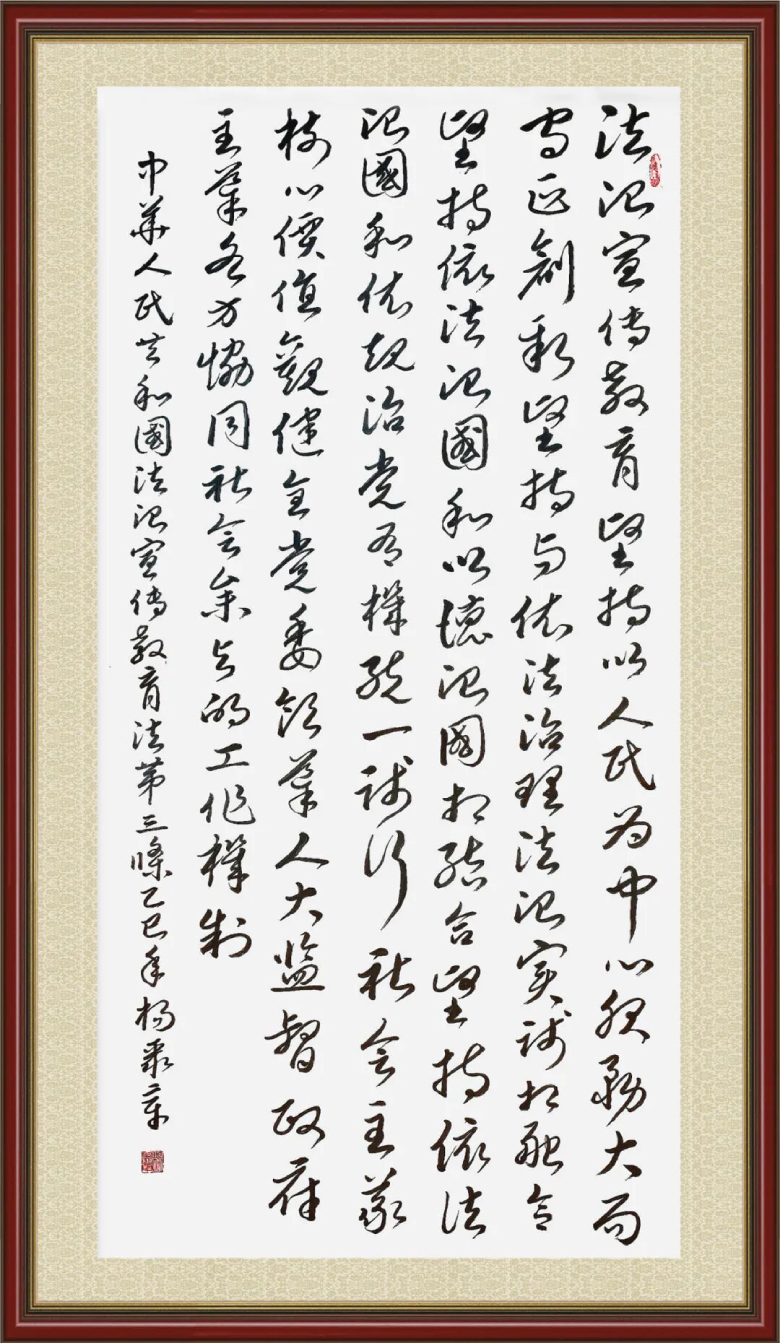 法治宣传教育坚持以人民为中心服務大局
守正創新坚持与依法治理法治实践相融合
坚持依法治國和以德治國相结合坚持依法
治國和依规治党有機统一践行社会主義
核心價值觀健全党委领導人大监督政府
主導各方協同社会參与的工作機制
中華人民共和國法治宣传教育法第三條乙巳年杨